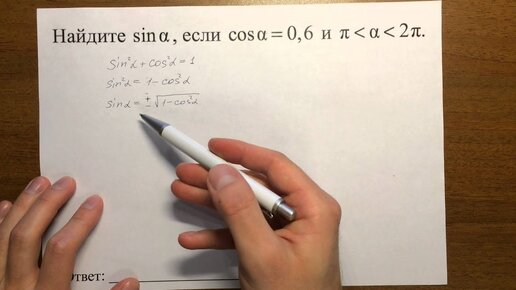 Найдите sin α, если cos α = 0,6 и π < α < 2π.
sin²α + cos²α = 1
sin²α = 1 - cos²α
sinα = ± √1 - cos²α
твет: